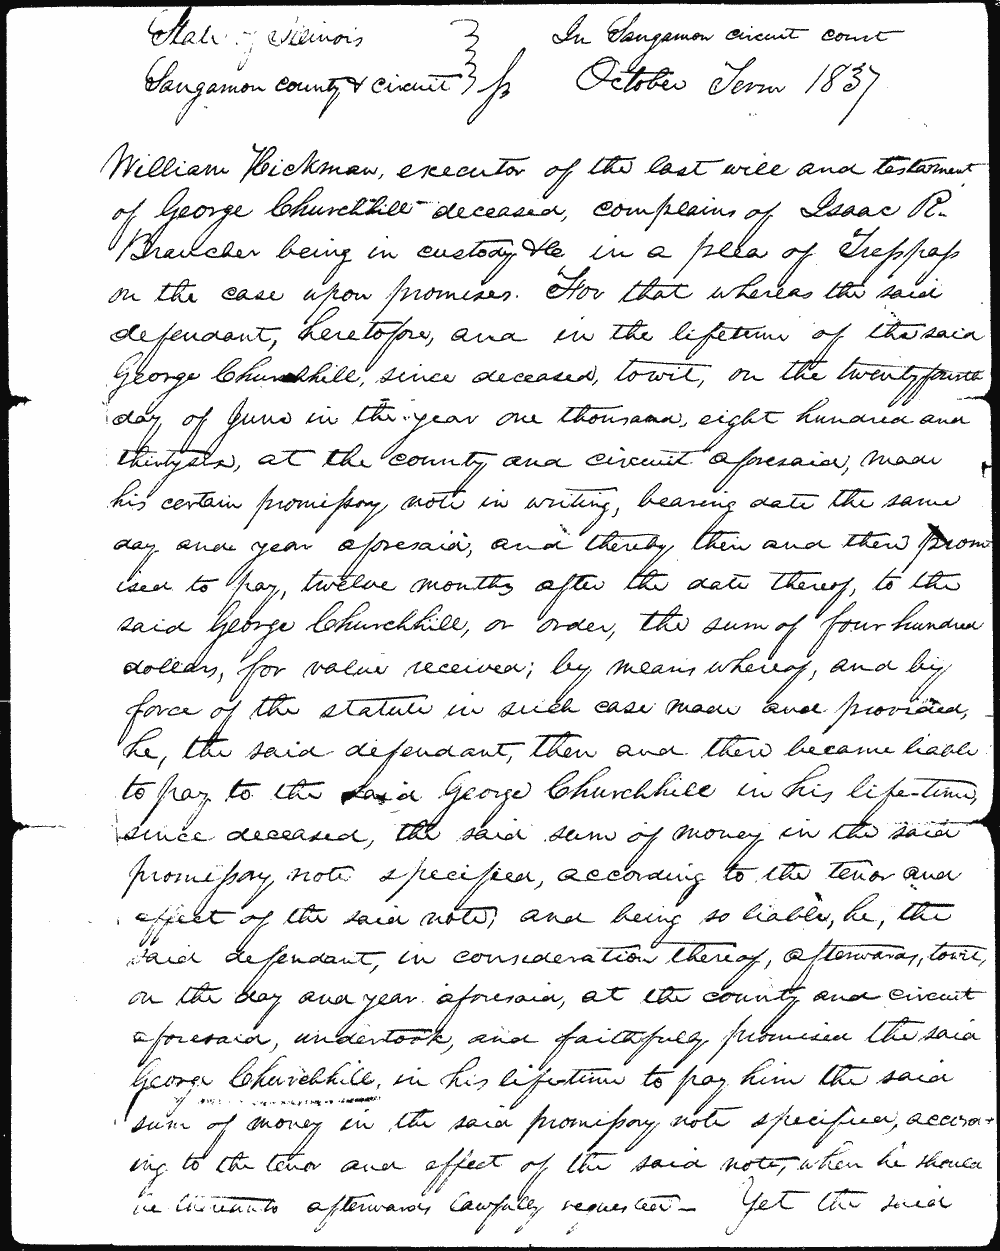 State of Illinois
Sangamon county & circuit } ss
In Sangamon circuit court
October Term 1837
William Hickman, executor of the last will and testament
of George Churchhill deceased, complains of Isaac R.
Braucher being in custody &c in a plea of Trespass
on the case upon promises. For that whereas the said
defendant, heretofore, and in the lifetime of the said
George Churchhill, since deceased, towit, on the twentyfourth
day of June in the year one thousand, eight hundred and
thirtysix, at the county and circuit aforesaid, made
his certain promissory note in writing, bearing date the same
day and year aforesaid, and thereby then and there prom
ised to pay, twelve months after the date thereof, to the
said George Churchhill, or order, the sum of four hundred
dollars, for value received; by means whereof, and by
force of the statute in such case made and provided,
he, the said defendant, then and there became liable
to pay to the said George Churchhill in his life-time,
since deceased, the said sum of money in the said
promissory note specified, according to the tenor and
effect of the said note; and being so liable, he, the
said defendant, in consideration thereof, afterwards, towit,
on the day and year aforesaid, at the county and circuit
aforesaid, undertook, and faithfully promised the said
George Churchhill, in his life-time to pay him the said
sum of money in the said promissory note specified, accord-
ing to the tenor and effect of the said note, when he should
be thereunto afterwards lawfully requested— Yet the said